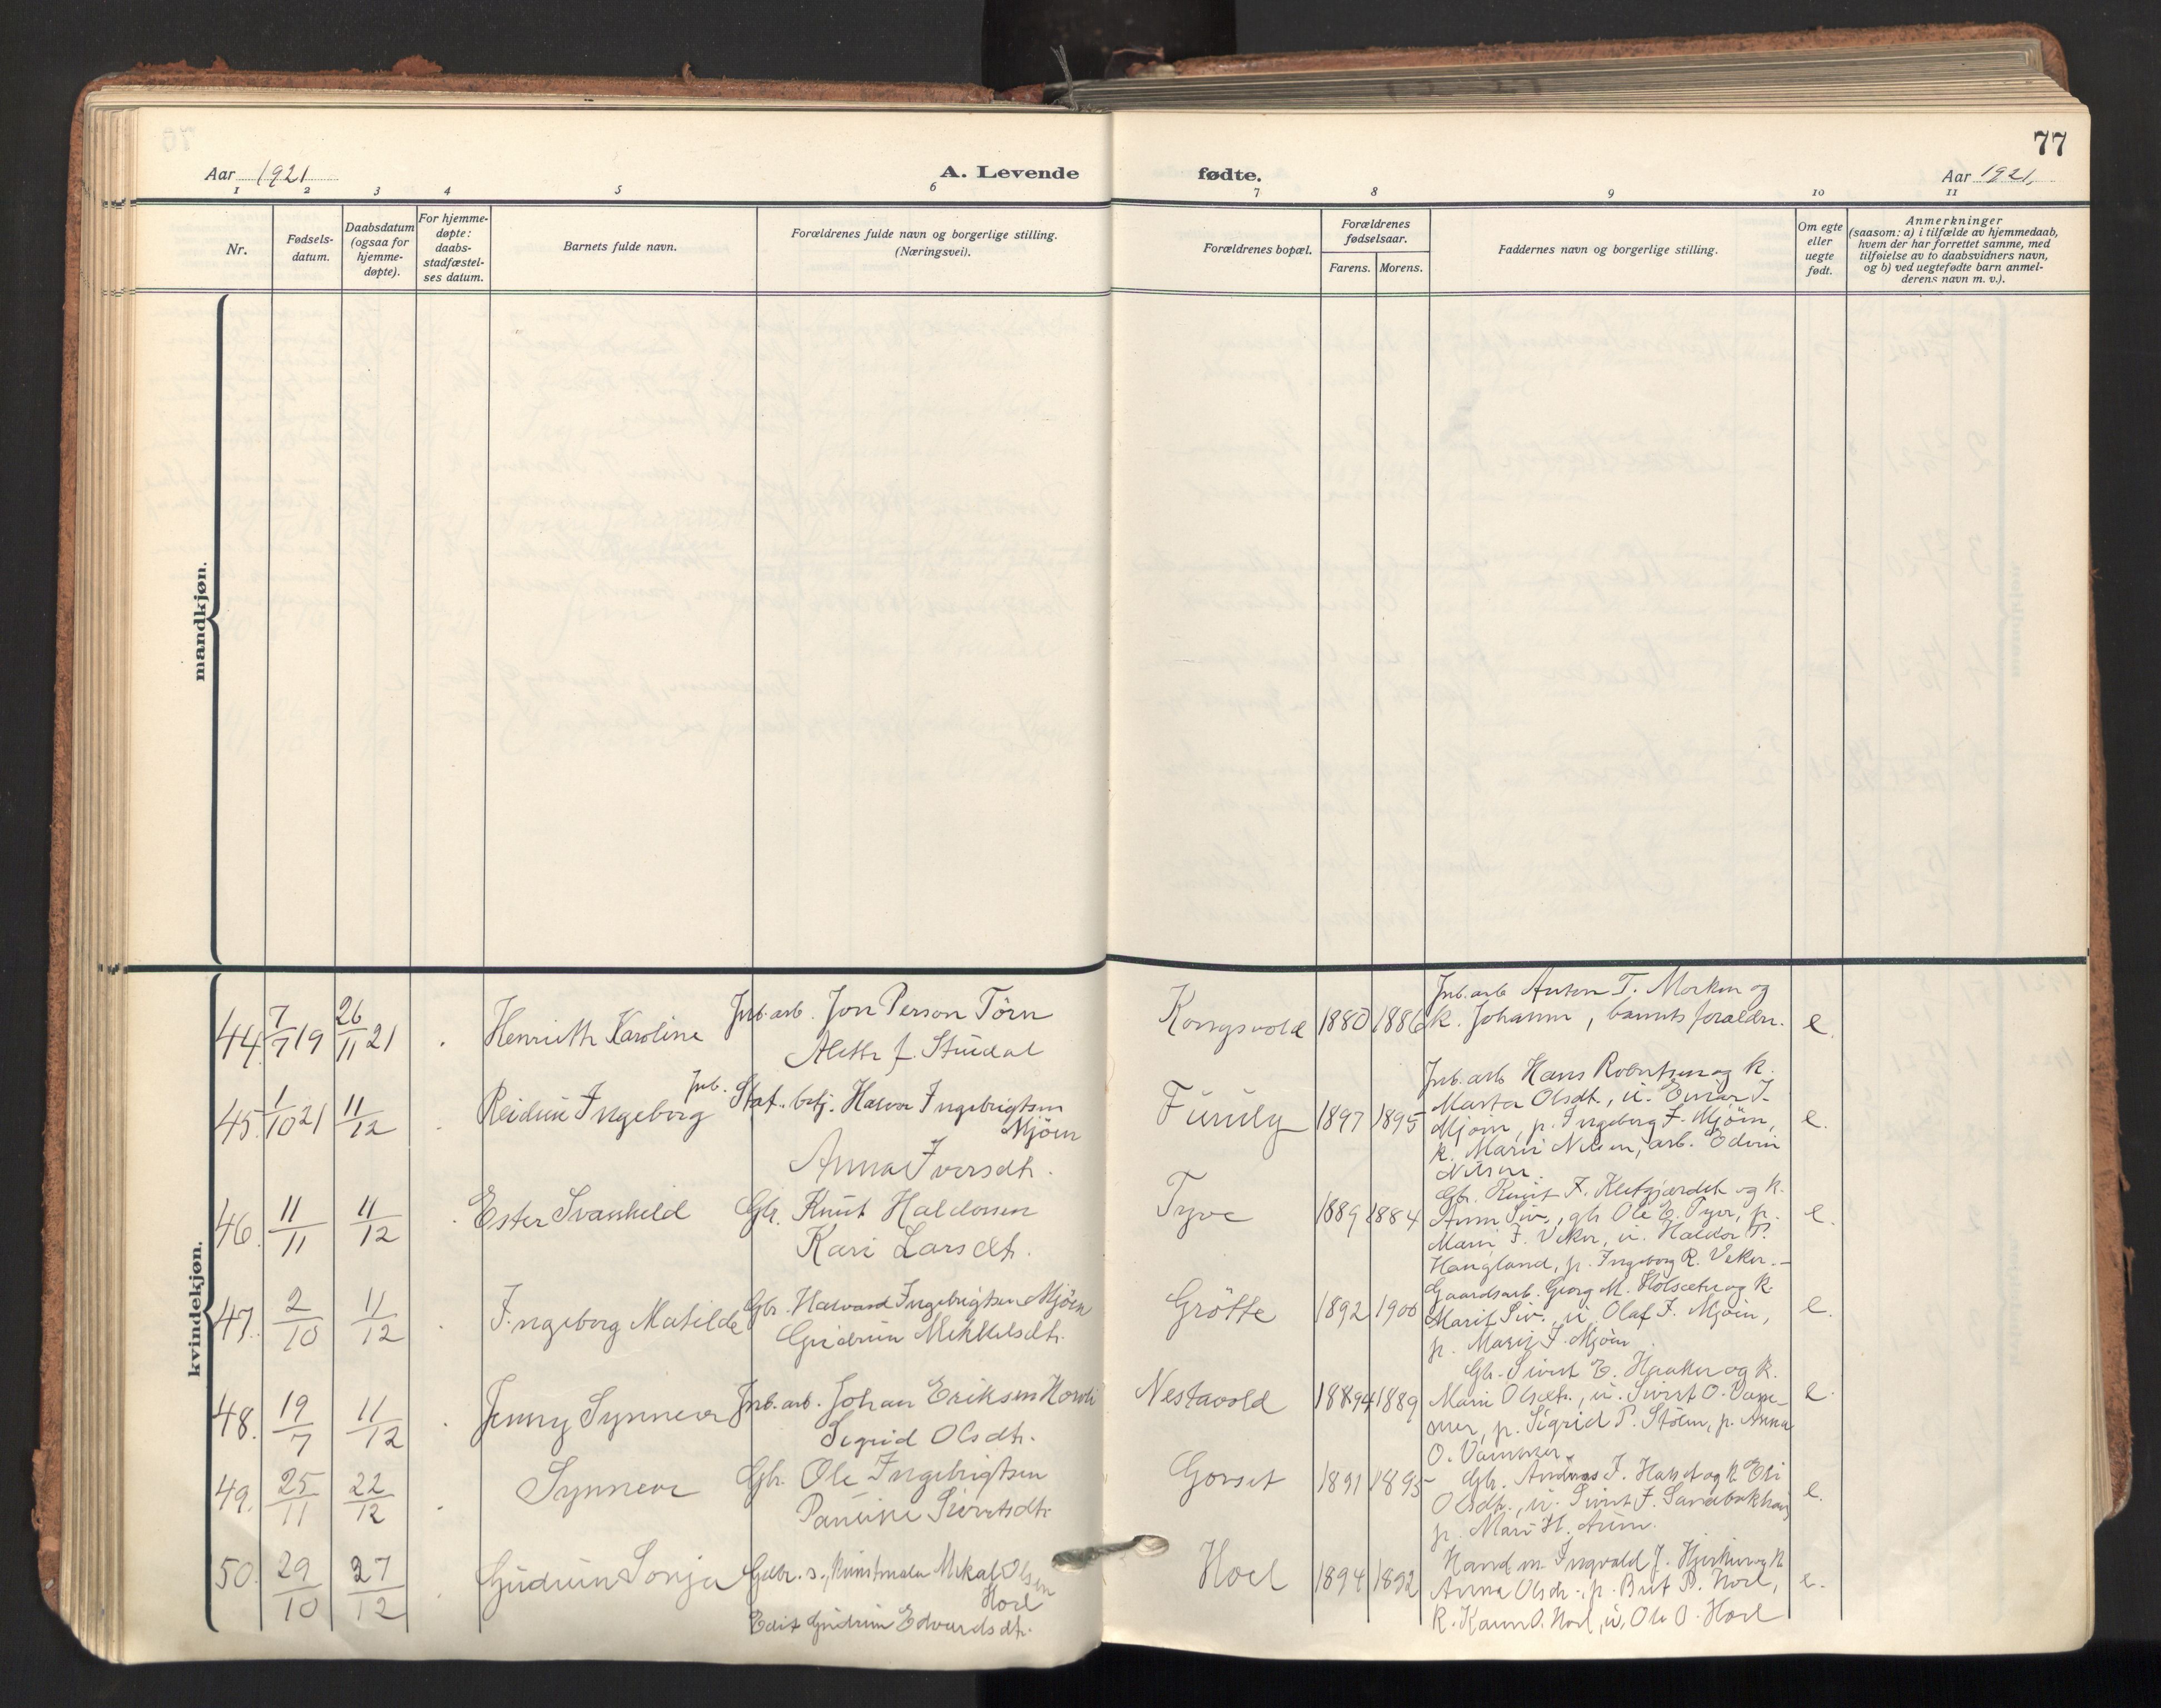 77
Aar 1921
A. Levende
fødte.
Aar 1921.
1 2 3 4 5 6 7 8 9 10 11
Nr.
Fødsels-
datum.
Daabsdatum
(ogsaa for
hjemme-
døpte).
For hjemme-
døpte:
daabs-
stadfæstel-
ses datum.
Barnets fulde navn.
Forældrenes fulde navn og borgerlige stilling.
(Næringsvei).
Forældrenes bopæl.
Forældrenes
fødselsaar.
Farens. Morens.
Faddernes navn og borgerlige stilling.
Om egte
eller
uegte
født.
Anmerkninger
(saasom: a) i tilfælde av hjemmedaab,
hvem der har forrettet samme, med
tilføielse av to daabsvidners navn,
og b) ved uegtefødte barn anmel-
derens navn m. v.).
mandkjøn.
kvindekjøn.
44. 7/7 19 26/11 21 Henriette Karoline
Jnb. arb. Jon Person Törn
Alette f. Stüdal
Kongsvold 1880 1886
Jnb. arb. Anton T. Morken og
k. Johanne, barnets forældre.
e.
45. 1/10 21 11/12 Reidün Ingeborg
Jnb. Stat. betj. Halvor Ingebrigtsen
Mjöen
Anna Iversdtr.
Fürüly 1897 1895
Jnb. arb. Hans Robertsen og k.
Marta Olsdt., ü. Einar I.
Mjöen, p. Ingeborg I. Mjöen,
k. Marie Nilsen, arb. Edvin
Nilsen.
e.
46. 11/11 11/12 Ester Svanhild
Gbr. Knüt Haldorsen
Kari Larsdtr.
Tyve 1889 1884
Gbr. Knüt F. Kletgjærdet og k.
Anne Siv., gb. Ole E. Tyve, p.
Mari F. Veker, ü. Haldor P.
Haugland, p. Ingeborg R. Veker.
e.
47. 2/10 11/12 Ingeborg Matilde
Gbr. Halvard Ingebrigtsen Mjöen
Güdrün Mikkelsdtr.
Grötte 1892 1900
Gaardsarb. Georg M. Holsæter og k.
Marit Siv., ü. Olaf I. Mjöen,
p. Marit I. Mjöen.
e.
48. 19/7 11/12 Jenny Synnöve
Jnb. arb. Johan Eriksen Horvli
Sigrid Olsdtr.
Nestavold 1894 1889
Gbr. Sivert E. Haaker og k.
Mari Olsdtr., ü. Sivert O. Vam-
mer, p. Sigrid P. Stöen, p. Anna
O. Vammer.
e.
49. 25/11 22/12 Synnöve
Gbr. Ole Ingebrigtsen
Paüline Sivertsdtr.
Gorset 1891 1895
Gbr. Andreas I. Hahot og k. Eli
Olsdtr., ü. Sivert I. Sandbækhaüg
p. Mari H. Aüne.
e.
50. 29/10 27/12 Güdrün Sonja
Gdbr. s., künstmaler Mikal Olsen
Hoel
Edit Güdrün Edvardsdtr.
Hoel 1894 1892
Hand m. Ingvald J. Hjerkin og k.
Anne Olsdr., p. Brit P. Hoel,
k. Karen O. Hoel, ü. Ole O. Hoel
e.